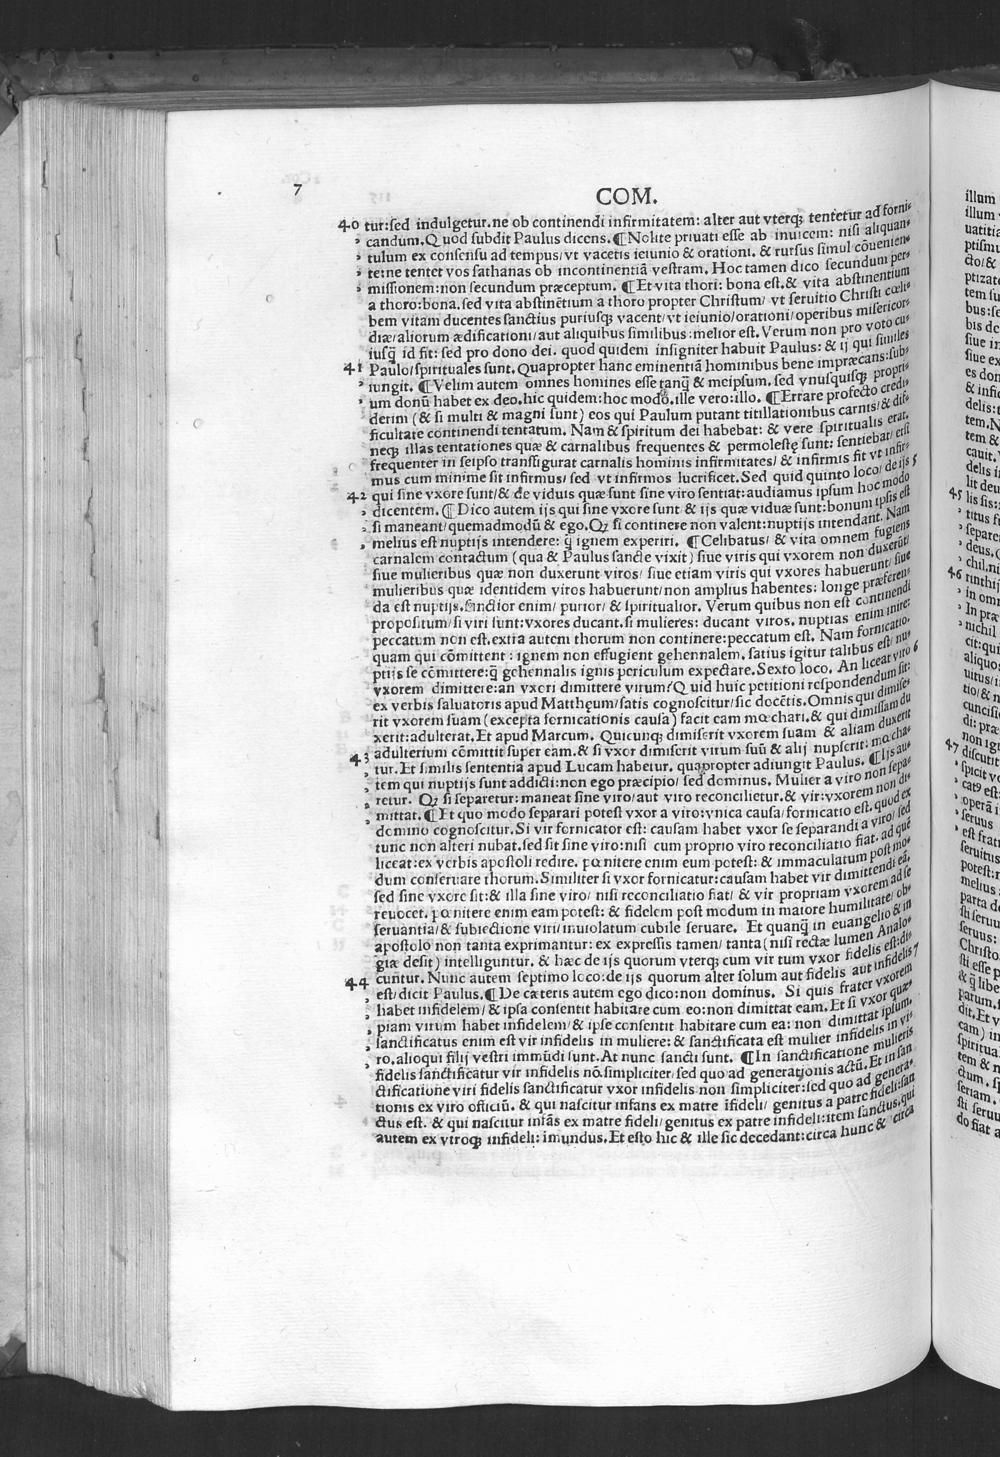 7
COM.
40 tur:ſed indulgetur.ne ob continendi infirmitatem: alter aut vterq; tentetur ad forni-
candum.Quod ſubdit Paulus dicens.¶Nolite priuati eſſe ab inuicem: niſi aliquan-
tulum ex conſenſu ad tempus/vt vacetis ieiunio & orationi. & rurſus ſimul cōuenien-
te:ne tentet vos ſathanas ob incontinentiā veſtram. Hoc tamen dico ſecundum per-
miſſionem:non ſecundum præceptum. ¶Et vita thori: bona eſt.& vita abſtinentium
a thoro:bona.ſed vita abſtinētium a thoro propter Chriſtum/ vt ſeruitio Chriſti cœli-
bem vitam ducentes ſanctius puriuſq; vacent/vt ieiunio/orationi/operibus miſericor-
diæ/aliorum ædificationi/aut aliquibus ſimilibus:melior eſt. Verum non pro voto cu-
iuſq̄ id fit: ſed pro dono dei. quod quidem inſigniter habuit Paulus: & ij qui ſimiles
41 Paulo/ſpirituales ſunt. Quapropter hanc eminentiā hominibus bene impræcans:ſub-
iungit. ¶Velim autem omnes homines eſſe tanq̄ & meipſum. ſed vnuſquiſq; propri-
um donū habet ex deo.hic quidem:hoc modo.ille vero:illo. ¶Errare profecto credi-
derim (& ſi multi & magni ſunt) eos qui Paulum putant titillationibus carnis/& dif-
ficultate continendi tentatum. Nam & ſpiritum dei habebat: & vere ſpiritualis erat.
neq; illas tentationes quæ & carnalibus frequentes & permoleſtę ſunt: ſentiebat/ etſi
frequenter in ſeipſo tranſfigurat carnalis hominis infirmitates/ & infirmis fit vt infir-
mus cum minime ſit infirmus/ ſed vt infirmos lucrificet.Sed quid quinto loco/ de ijs 5
42 qui ſine vxore ſunt/& de viduis quæ ſunt ſine viro ſentiat:audiamus ipſum hoc modo
dicentem.¶Dico autem ijs qui ſine vxore ſunt & ijs quæ viduæ ſunt:bonum ipſis eſt
ſi maneant/quemadmodū & ego.Qꝫ ſi continere non valent:nuptijs intendant. Nam
melius eſt nuptijs intendere: q̄ ignem experiri. ¶Celibatus/ & vita omnem fugiens
carnalem contactum (qua & Paulus ſancte vixit) ſiue viris qui vxorem non duxerūt/
ſiue mulieribus quæ non duxerunt viros/ ſiue etiam viris qui vxores habuerunt/ ſiue
mulieribus quæ identidem viros habuerunt/non amplius habentes: longe præferen-
da eſt nuptijs.ſanctior enim/ purior/ & ſpiritualior. Verum quibus non eſt continendi
propoſitum/ſi viri ſunt:vxores ducant.ſi mulieres: ducant viros. nuptias enim inire:
peccatum non eſt.extra autem thorum non continere:peccatum eſt. Nam fornicatio-
quam qui cōmittent : ignem non effugient gehennalem. ſatius igitur talibus eſt/ nu-
ptijs ſe cōmittere:q̄ gehennalis ignis periculum expectare.Sexto loco. An liceat viro 6
vxorem dimittere:an vxori dimittere virum?Quid huic petitioni reſpondendum ſit:
ex verbis ſaluatoris apud Matthęum/ſatis cognoſcitur/ſic docētis.Omnis qui dimiſe-
rit vxorem ſuam (excepta fornicationis cauſa) facit eam mœchari.& qui dimiſſam du
xerit:adulterat.Et apud Marcum. Quicunq; dimiſerit vxorem ſuam & aliam duxerit
43 adulterium cōmittit ſuper eam.& ſi vxor dimiſerit virum ſuū & alij nupſerit: mœcha-
tur.Et ſimilis ſententia apud Lucam habetur. quapropter adiungit Paulus. ¶Ijs au-
tem qui nuptijs ſunt addicti:non ego præcipio/ ſed dominus. Mulier a viro non ſepa-
retur. Qꝫ ſi ſeparetur: maneat ſine viro/aut viro reconcilietur.& vir:vxorem non di-
mittat.¶Et quo modo ſeparari poteſt vxor a viro:vnica cauſa/fornicatio eſt.quod ex
domino cognoſcitur.Si vir fornicator eſt: cauſam habet vxor ſe ſeparandi a viro/ ſed
tunc non alteri nubat.ſed ſit ſine viro:niſi cum proprio viro reconciliatio fiat. ad quē
liceat:ex verbis apoſtoli redire. pœnitere enim eum poteſt: & immaculatum poſt mo-
dum conſeruare thorum.Similiter ſi vxor fornicatur:cauſam habet vir dimittendi eā.
ſed ſine vxore ſit:& illa ſine viro/ niſi reconciliatio fiat/ & vir propriam vxorem ad ſe
reuocet. pœnitere enim eam poteſt: & fidelem poſt modum in maiore humilitate/ ob-
ſeruantia/& ſubiectione viri/inuiolatum cubile ſeruare. Et quanq̄ in euangelio & in
apoſtolo non tanta exprimantur: ex expreſſis tamen/ tanta (niſi rectæ lumen Analo-
giæ deſit) intelliguntur. & hæc de ijs quorum vterq; cum vir tum vxor fidelis eſt:di-
44 cuntur. Nunc autem ſeptimo loco:de ijs quorum alter ſolum aut fidelis aut infidelis 7
eſt/dicit Paulus.¶De cæteris autem ego dico:non dominus. Si quis frater vxorem
habet infidelem/ & ipſa conſentit habitare cum eo:non dimittat eam.Et ſi vxor quæ-
piam virum habet infidelem/ & ipſe conſentit habitare cum ea: non dimittat ipſum.
ſanctificatus enim eſt vir infidelis in muliere: & ſanctificata eſt mulier infidelis in vi-
ro.alioqui filij veſtri immūdi ſunt.At nunc ſancti ſunt. ¶In ſanctificatione mulieris
fidelis ſanctificatur vir infidelis nō.ſimpliciter/ſed quo ad generationis actū. Et in ſan
ctificatione viri fidelis ſanctificatur vxor infidelis non ſimpliciter:ſed quo ad genera-
tionis ex viro officiū. & qui naſcitur infans ex matre īfideli/ genitus a patre fideli:ſan
ctus eſt. & qui naſcitur infās ex matre fideli/ genitus ex patre infideli:item ſanctus.qui
autem ex vtroq; infideli: imundus.Et eſto hic & ille ſic decedant:circa hunc & circa